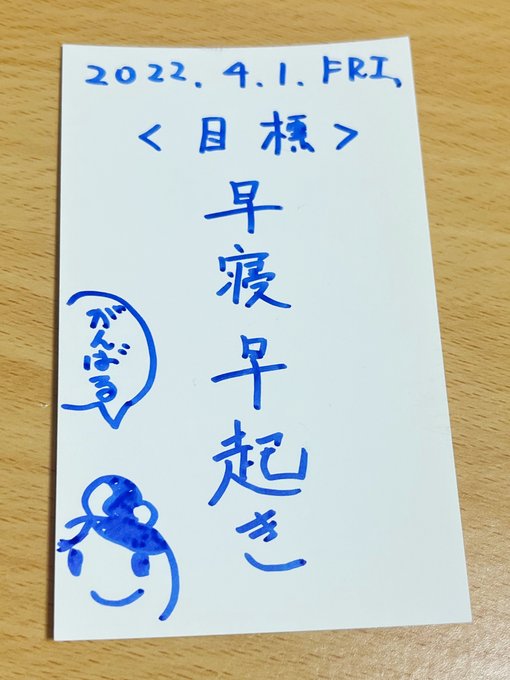 2022.4.1.FRI,
<目標>
早寝早起き
がんばる